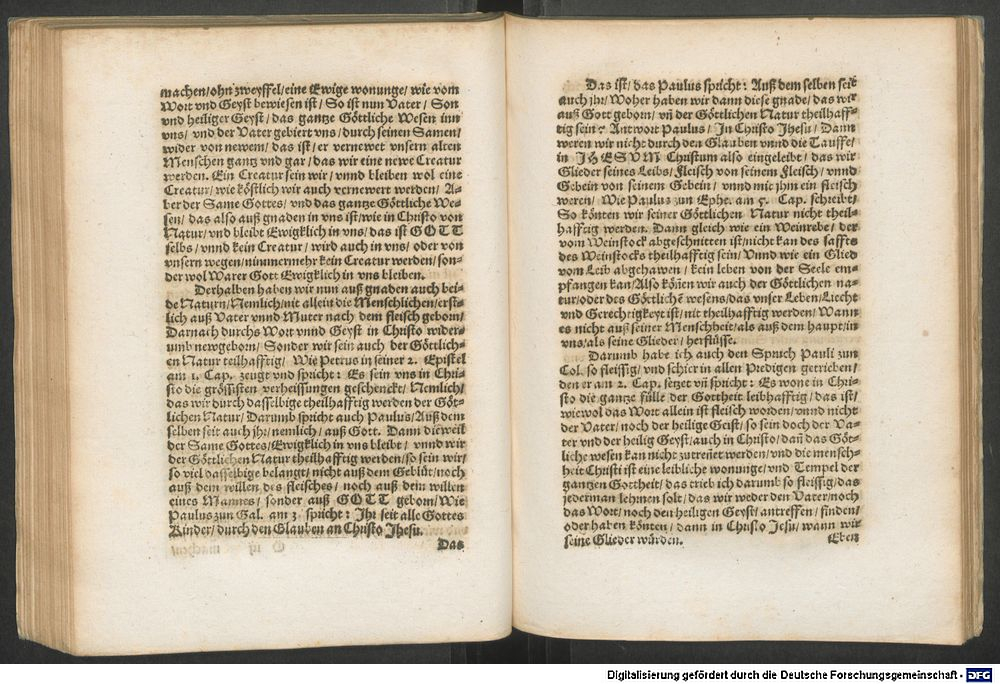 machen/ohn zweyffel/eine Ewige wonunge/wie vom
Wort vnd Geyst bewiesen ist/So ist nun Vater/Son
vnd heiliger Geyst/das gantze Göttliche Wesen inn
vns/vnd der Vater gebiert vns/durch seinen Samen/
wider von newem/das ist/er vernewet vnsern alten
Menschen gantz vnd gar/das wir eine newe Creatur
werden. Ein Creatur sein wir/vnnd bleiben wol eine
Creatur/wie köstlich wir auch vernewert werden/A-
ber der Same Gottes/vnd das gantze Göttliche We-
sen/das also auß gnaden in vns ist/wie in Christo von
Natur/vnd bleibt Ewigklich in vns/das ist GOTT
selbs/vnnd kein Creatur/wird auch in vns/oder von
vnsern wegen/nimmermehr kein Creatur werden/son-
der wol Warer Gott Ewigklich in vns bleiben.
Derhalben haben wir nun auß gnaden auch bei-
de Naturn/Nemlich/nit allein die Menschlichen/erst-
lich auß Vater vnnd Muter nach dem fleisch geborn/
Darnach durchs Wort vnnd Geyst in Christo wider-
umb newgeborn/Sonder wir sein auch der Göttlich-
en Natur teilhafftig/Wie Petrus in seiner 2. Epistel
am 1. Cap. zeugt vnd spricht: Es sein vns in Chri-
sto die grössisten verheissungen geschenckt/Nemlich/
das wir durch dasselbige theilhafftig werden der Göt-
lichen Natur/Darumb spricht auch Paulus/Auß dem
selben seit auch jhr/nemlich/auß Gott. Dann dieweil
der Same Gottes/Ewigklich in vns bleibt/vnnd wir
der Göttlichen Natur theilhafftig werden/so sein wir/
so viel dasselbige belangt/nicht auß dem Geblüt/noch
auß dem willen des fleisches/noch auß dem willen
eines Mannes/sonder auß GOTT geborn/Wie
Paulus zun Gal. am 3 spricht: Jhr seit alle Gottes
Kinder/durch den Glauben an Christo Jhesu.
Das
Das ist/das Paulus spricht: Auß dem selben seit
auch jhr/Woher haben wir dann diese gnade/das wir
auß Gott geborn/vñ der Göttlichen Natur theilhaff-
tig sein? Antwort Paulus/In Christo Jhesu/Dann
weren wir nicht durch den Glauben vnnd die Tauffe/
in JHESVM Christum also eingeleibt/das wir
Glieder seines Leibs/Fleisch von seinem Fleisch/vnnd
Gebein von seinem Gebein/vnnd mit jhm ein fleisch
weren/Wie Paulus zun Ephe. am 5. Cap. schreibt/
So könten wir seiner Göttlichen Natur nicht theil-
hafftig werden. Dann gleich wie ein Weinrebe/der
vom Weinstock abgeschnitten ist/nicht kan des saffts
des Weinstocks theilhafftig sein/Vnnd wie ein Glied
vom Leib abgehawen/kein leben von der Seele em-
pfangen kan/Also köñen wir auch der Göttlichen na-
tur/oder des Göttlichē wesens/das vnser Leben/Liecht
vnd Gerechtigkeyt ist/nit theilhafftig werden/Wann
es nicht auß seiner Menschheit/als auß dem haupt/in
vns/als seine Glieder/herflüsse.
Darumb habe ich auch den Spruch Pauli zun
Col. so fleissig/vnd schier in allen Predigen getrieben/
den er am 2. Cap. setzet vñ spricht: Es wone in Chri-
sto die gantze fülle der Gottheit leibhafftig/das ist/
wiewol das Wort allein ist fleisch worden/vnnd nicht
der Vater/noch der heilige Geist/so sein doch der Va-
ter vnd der heilig Geyst/auch in Christo/dañ das Göt-
liche wesen kan nicht zutreñet werden/vnd die mensch-
heit Christi ist eine leibliche wonunge/vnd Tempel der
gantzen Gottheit/das trieb ich darumb so fleissig/das
jederman lehrnen solt/das wir weder den Vater/noch
das Wort/noch den heiligen Geyst/antreffen/finden/
oder haben könten/dann in Christo Jesu/wann wir
seine Glieder würden.
Eben
Digitalisierung gefördert durch die Deutsche Forschungsgemeinschaft - DFG